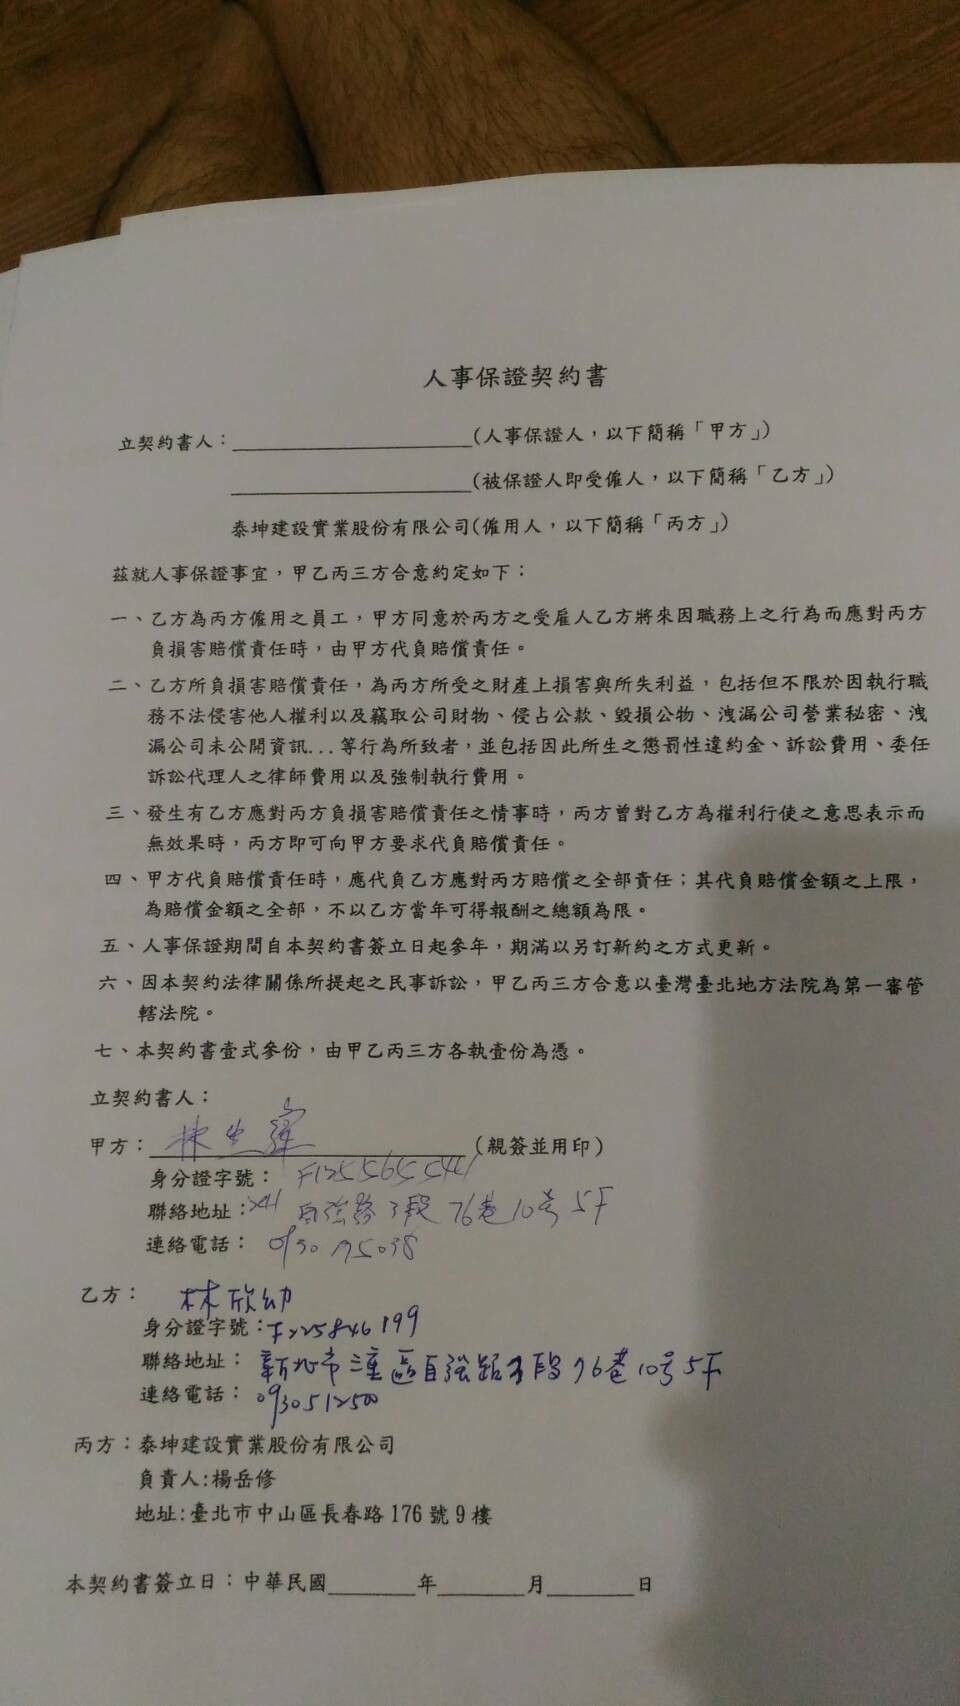 人事保證契約書
立契約書人：＿＿＿＿＿＿＿＿(人事保證人，以下簡稱「甲方」)
＿＿＿＿＿＿＿＿(被保證人即受僱人，以下簡稱「乙方」)
泰坤建設實業股份有限公司(僱用人，以下簡稱「丙方」)
茲就人事保證事宜，甲乙丙三方合意約定如下：
一、乙方為丙方僱用之員工，甲方同意於丙方之受雇人乙方將來因職務上之行為而應對丙方
負損害賠償責任時，由甲方代負賠償責任。
二、乙方所負損害賠償責任，為丙方所受之財產上損害與所失利益，包括但不限於因執行職
務不法侵害他人權利以及竊取公司財物、侵占公款、毀損公物、洩漏公司營業秘密、洩
漏公司未公開資訊...等行為所致者，並包括因此所生之懲罰性違約金、訴訟費用、委任
訴訟代理人之律師費用以及強制執行費用。
三、發生有乙方應對丙方負損害賠償責任之情事時，丙方曾對乙方為權利行使之意思表示而
無效果時，丙方即可向甲方要求代負賠償責任。
四、甲方代負賠償責任時，應代負乙方應對丙方賠償之全部責任；其代負賠償金額之上限，
為賠償金額之全部，不以乙方當年可得報酬之總額為限。
五、人事保證期間自本契約書簽立日起參年，期滿以另訂新約之方式更新。
六、因本契約法律關係所提起之民事訴訟，甲乙丙三方合意以臺灣臺北地方法院為第一審管
轄法院。
七、本契約書壹式參份，由甲乙丙三方各執壹份為憑。
立契約書人：
甲方：林生 (親簽並用印)
身分證字號：F125565441
聯絡地址：241 自強路 段 76巷10号5F
連絡電話：0930 195038
乙方：林欣幼
身分證字號：F225846199
聯絡地址：新北市三重區自強路 段76巷10号5F
連絡電話：0930512500
丙方：泰坤建設實業股份有限公司
負責人:楊岳修
地址:臺北市中山區長春路 176 號 9 樓
本契約書簽立日：中華民國＿＿＿年＿＿＿月＿＿＿日